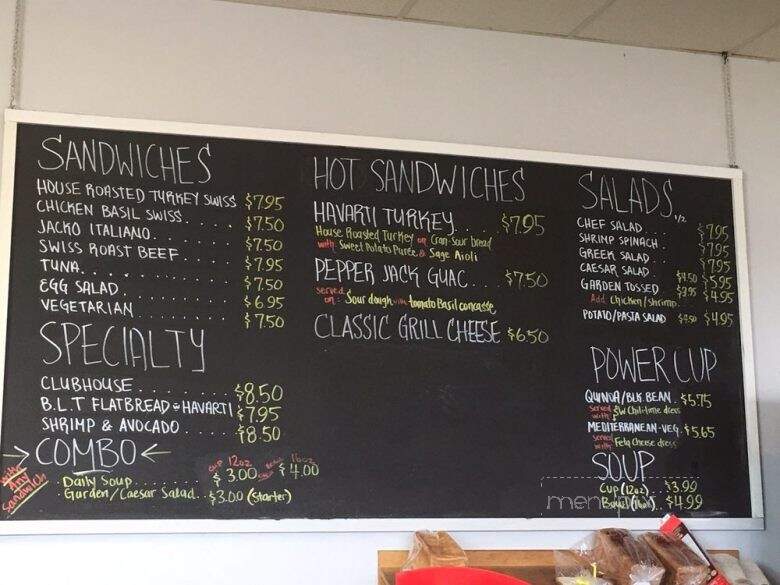 SANDWICHES
HOUSE ROASTED TURKEY SWISS $7.95
CHICKEN BASIL SWISS..... $7.50
JACKO ITALIANO....... $7.50
SWISS ROAST BEEF..... $7.95
TUNA............ $7.50
EGG SALAD......... $6.95
VEGETARIAN........ $7.50
SPECIALTY
CLUBHOUSE......... $8.50
B.L.T FLATBREAD & HAVARTI $7.95
SHRIMP & AVOCADO..... $8.50
→COMBO←
with Any Sandwich
CUP 12oz 16oz
Daily Soup....... $3.00 $4.00
Garden/Caesar Salad.. $3.00 (starter)
HOT SANDWICHES
HAVARTI TURKEY.... $7.95
House Roasted Turkey on Cran-Sour bread
with Sweet Potato Purée & Sage Aioli
PEPPER JACK GUAC... $7.50
served on: Sour dough with tomato Basil concasse
CLASSIC GRILL CHEESE $6.50
SALADS
1/2
CHEF SALAD.... $7.95
SHRIMP SPINACH. $7.95
GREEK SALAD... $7.95
CAESAR SALAD... $4.50 $5.95
GARDEN TOSSED $3.95 $4.95
Add Chicken/Shrimp
POTATO/PASTA SALAD $3.50 $4.95
POWER CUP
QUINOA/BLK BEAN. $5.75
served with: SW Chili-lime dress
MEDITERRANEAN-VEG. $5.65
served with: Feta Cheese dress
SOUP
Cup (12oz).. $3.99
Bowl (16oz).. $4.99